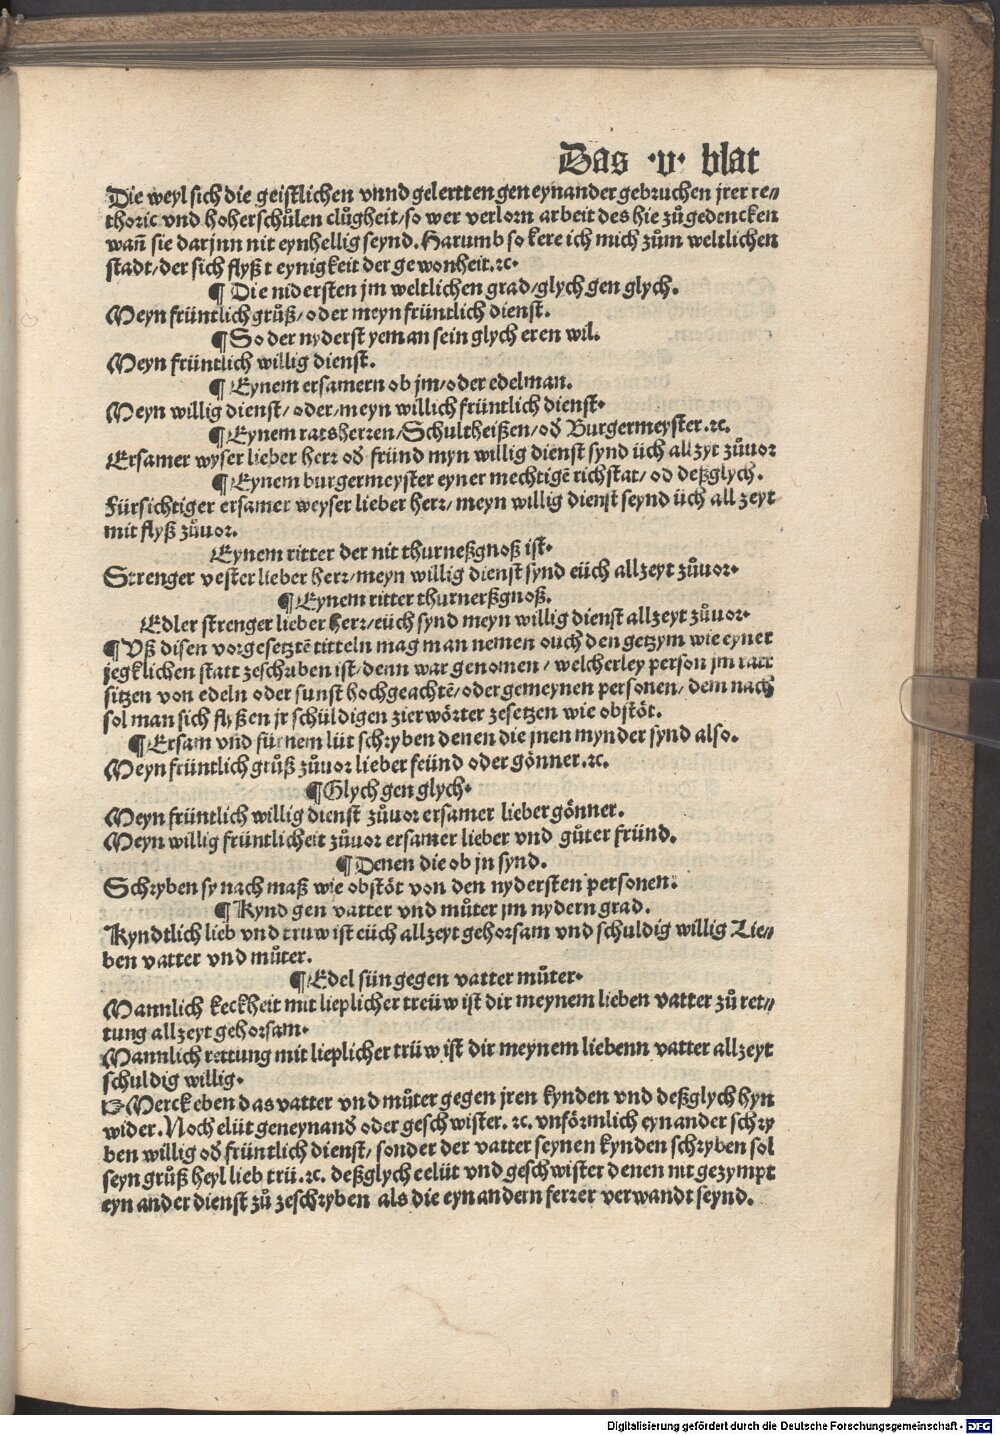 Das ·v· blat
Die weyl sich die geistlichen vnnd gelertten gen eynander gebruchen jrer re⸗
thoric vnd hoherschůlen clůgheit/so wer verlorn arbeit des hie zůgedencken
wañ sie darjnn nit eynhellig seynd. Harumb so kere ich mich zům weltlichen
stadt/der sich flyßt eynigkeit der gewonheit.⁊c.
¶ Die nidersten jm weltlichen grad/glych gen glych.
Meyn früntlich grůß/oder meyn früntlich dienst.
¶ So der nyderst yeman sein glych eren wil.
Meyn früntlich willig dienst.
¶ Eynem ersamern ob jm/oder edelman.
Meyn willig dienst/oder/meyn willich früntlich dienst.
¶ Eynem ratsherren/Schultheißen/oď Burgermeyster.⁊c.
Ersamer wyser lieber herr oď fründ myn willig dienst synd üch allzyt zůuor
¶ Eynem burgermeyster eyner mechtigē richstat/od deßglych.
Fürsichtiger ersamer weyser lieber herr/meyn willig dienst seynd üch all zeyt
mit flyß zůuor.
Eynem ritter der nit thurneßgnoß ist.
Strenger vester lieber herr/meyn willig dienst synd eüch allzeyt zůuor.
¶ Eynem ritter thurnerßgnoß.
Edler strenger lieber herr/eüch synd meyn willig dienst allzeyt zůuor.
¶ Vß disen vorgesetztē titteln mag man nemen ouch den getzym wie eyner
jegklichen statt zeschriben ist/denn war genomen/welcherley person jm ratt
sitzen von edeln oder sunst hochgeachtē/oder gemeynen personen/dem nach
sol man sich flyßen jr schüldigen zierwörter zesetzen wie obstöt.
¶ Ersam vnd fürnem lüt schryben denen die jnen mynder synd also.
Meyn früntlich grůß zůuor lieber feünd oder gönner.⁊c.
¶ Glych gen glych.
Meyn früntlich willig dienst zůuor ersamer lieber gönner.
Meyn willig früntlicheit zůuor ersamer lieber vnd gůter fründ.
¶ Denen die ob jn synd.
Schryben sy nach maß wie obstöt von den nydersten personen.
¶ Kynd gen vatter vnd můter jm nydern grad.
Kyndtlich lieb vnd truw ist eüch allzeyt gehorsam vnd schuldig willig Lie⸗
ben vatter vnd můter.
¶ Edel sün gegen vatter můter.
Mannlich keckheit mit lieplicher treüw ist dir meynem lieben vatter zů ret⸗
tung allzeyt gehorsam.
Mannlich rettung mit lieplicher trüw ist dir meynem liebenn vatter allzeyt
schuldig willig.
☞ Merck eben das vatter vnd můter gegen jren kynden vnd deßglych hyn
wider. Noch elüt geneynanď oder geschwister.⁊c. vnförmlich eynander schry
ben willig oď früntlich dienst/sonder der vatter seynen kynden schryben sol
seyn grůß heyl lieb trü.⁊c. deßglych eelüt vnd geschwister denen nit gezympt
eyn ander dienst zů zeschryben als die eynandern ferrer verwandt seynd.
Digitalisierung gefördert durch die Deutsche Forschungsgemeinschaft - DFG